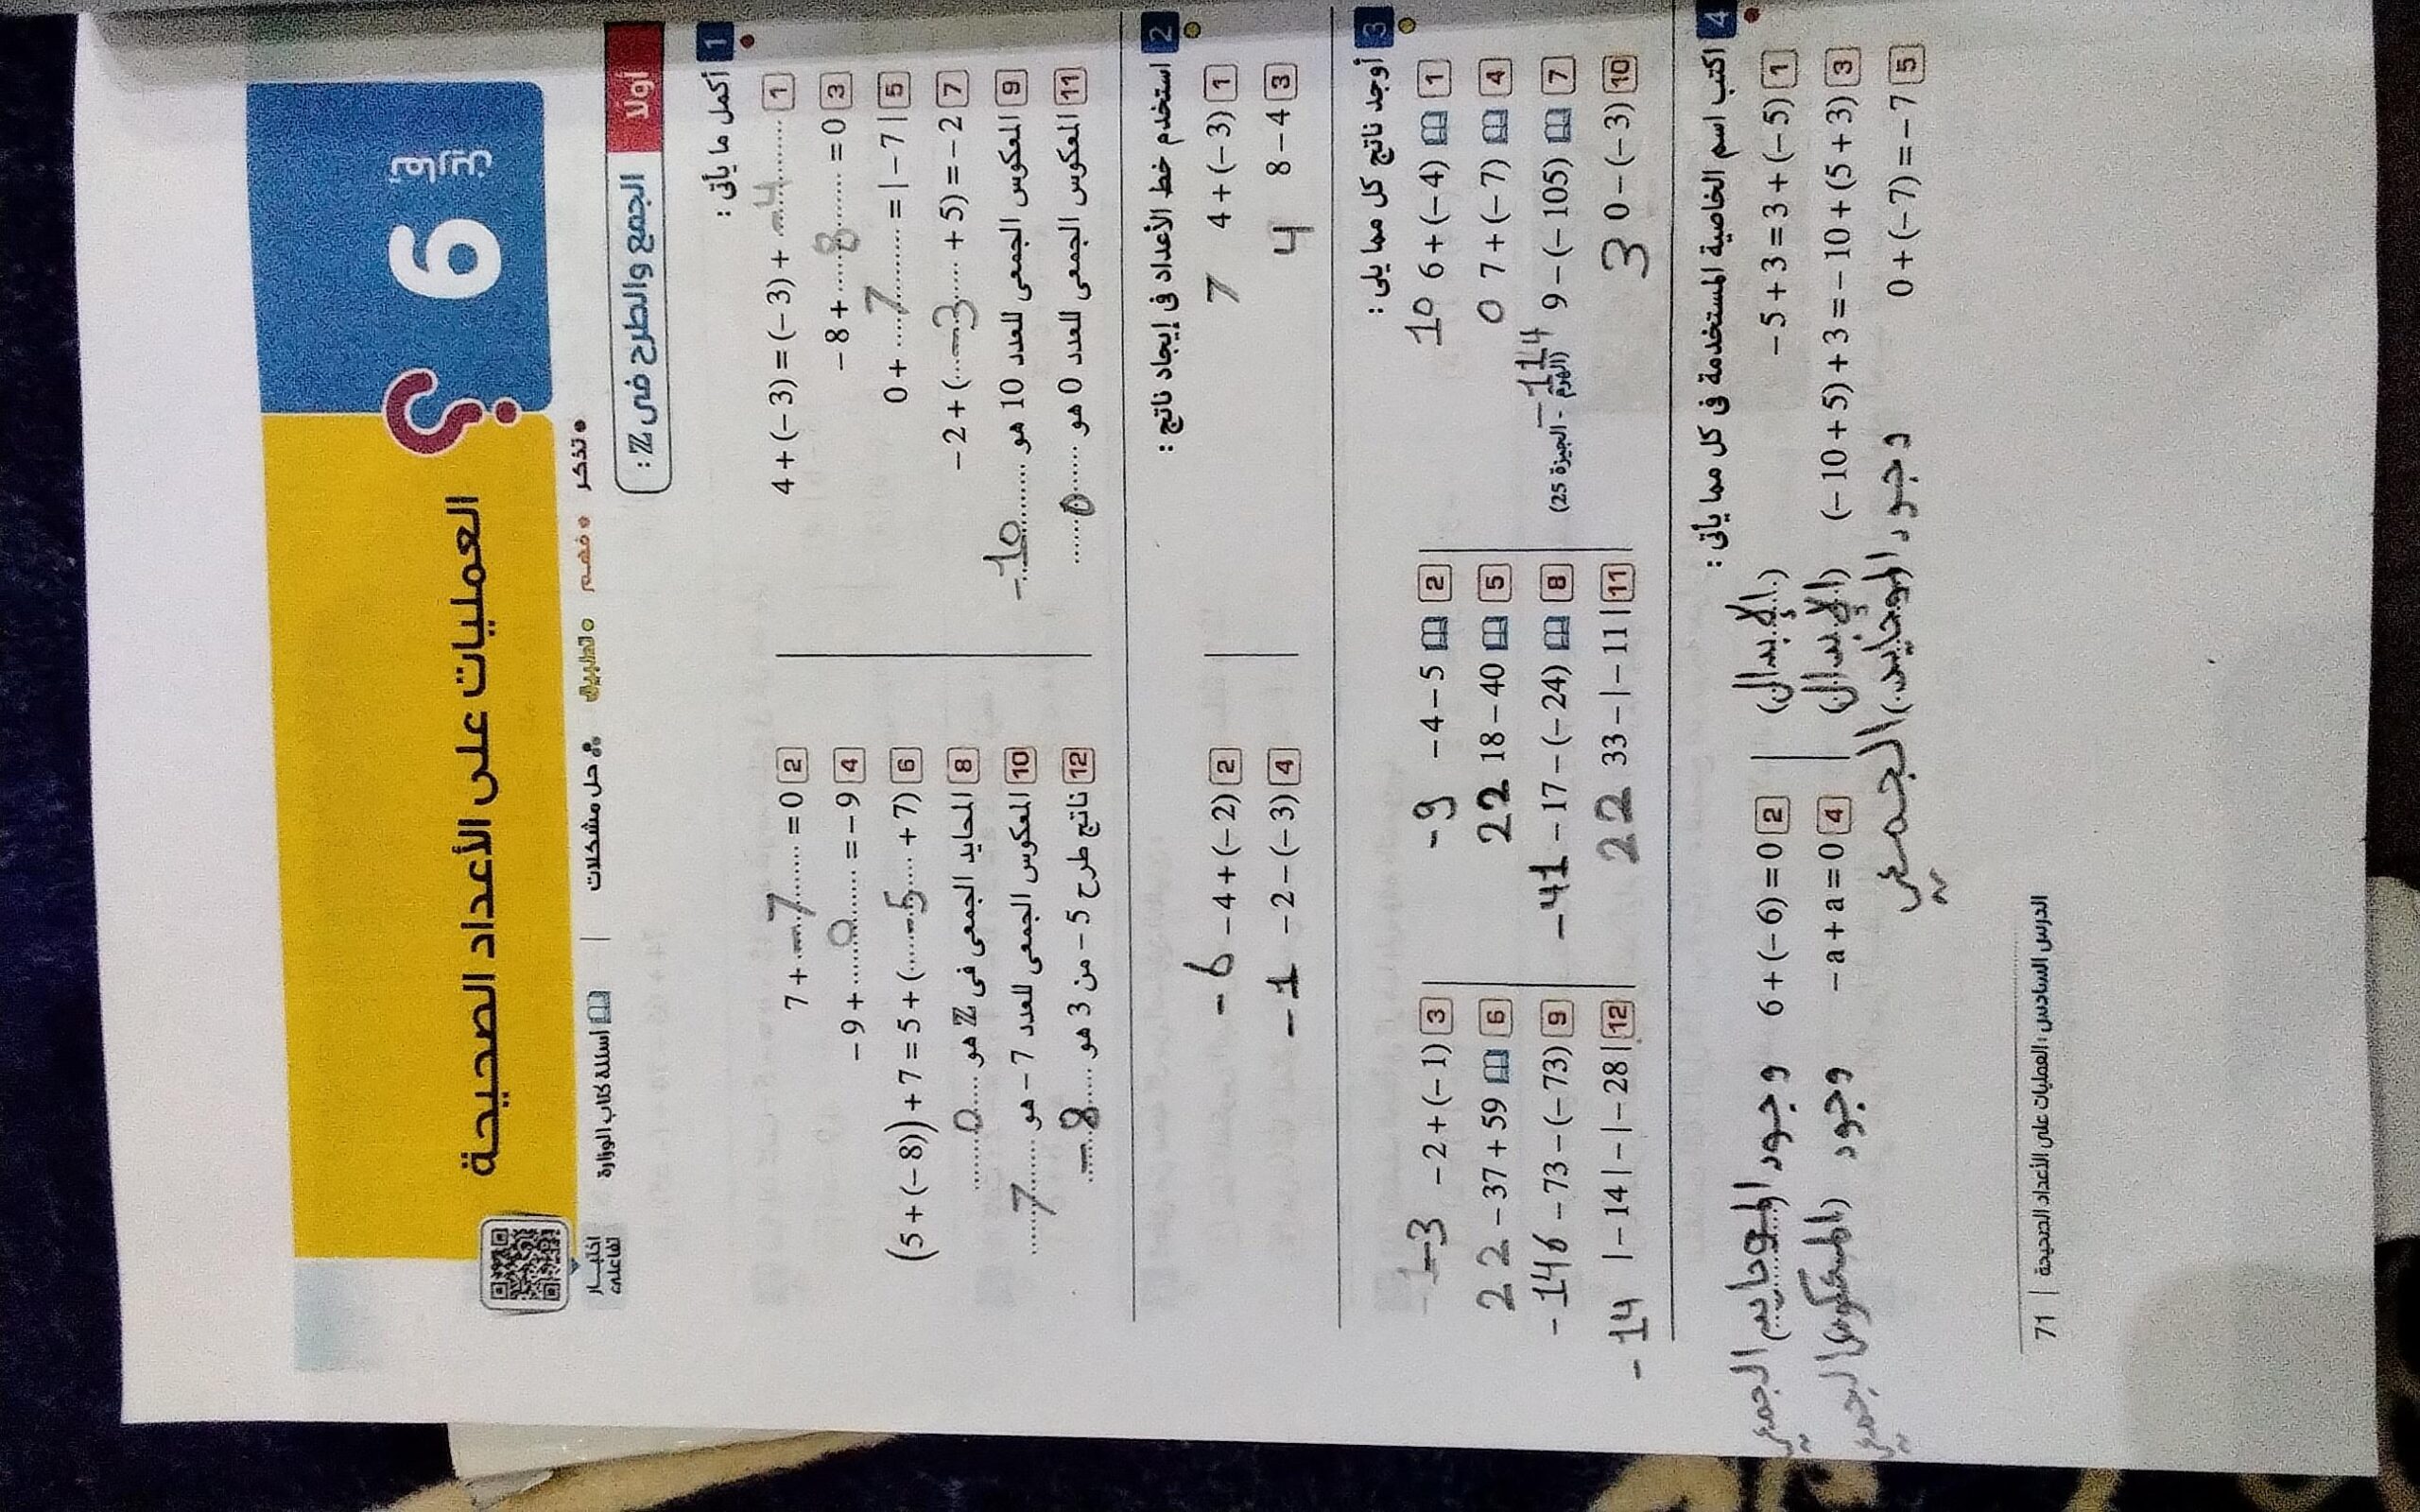 تمارين 6 على
العمليات على الأعداد الصحيحة
اختبار تفاعلى
تذكر • فهم • تطبيق • حل مشكلات | أسئلة كتاب الوزارة
أولًا الجمع والطرح فى ℤ :
1 أكمل ما يأتى :
1 4 + (– 3) = (– 3) + -4
2 7 + -7 = 0
3 – 8 + 8 = 0
4 – 9 + 0 = – 9
5 0 + 7 = | – 7 |
6 (5 + (– 8)) + 7 = 5 + (-5 + 7)
7 – 2 + (-3 + 5) = – 2
8 المحايد الجمعى فى ℤ هو 0
9 المعكوس الجمعى للعدد 10 هو -10
10 المعكوس الجمعى للعدد – 7 هو 7
11 المعكوس الجمعى للعدد 0 هو 0
12 ناتج طرح – 5 من 3 هو -8
2 استخدم خط الأعداد فى إيجاد ناتج :
1 4 + (– 3) 7
2 – 4 + (– 2) -6
3 8 – 4 4
4 – 2 – (– 3) -1
3 أوجد ناتج كل مما يلى :
1 6 + (– 4) 10
2 – 4 – 5 -9
3 – 2 + (– 1) -3
4 7 + (– 7) 0
5 18 – 40 22
6 – 37 + 59 22
7 9 – (– 105) (الهرم - الجيزة 25) -114
8 – 17 – (– 24) -41
9 – 73 – (– 73) -146
10 0 – (– 3) 3
11 33 – | – 11 | 22
12 | – 14 | – | – 28 | -14
4 اكتب اسم الخاصية المستخدمة فى كل مما يأتى :
1 – 5 + 3 = 3 + (– 5) (الإبدال)
2 6 + (– 6) = 0 وجود الجمعي
3 (– 10 + 5) + 3 = – 10 + (5 + 3) (الإبدال)
4 – a + a = 0 وجود (المعكوس الجمعي
5 0 + (– 7) = – 7 وجود الجمعي
71 | الدرس السادس : العمليات على الأعداد الصحيحة